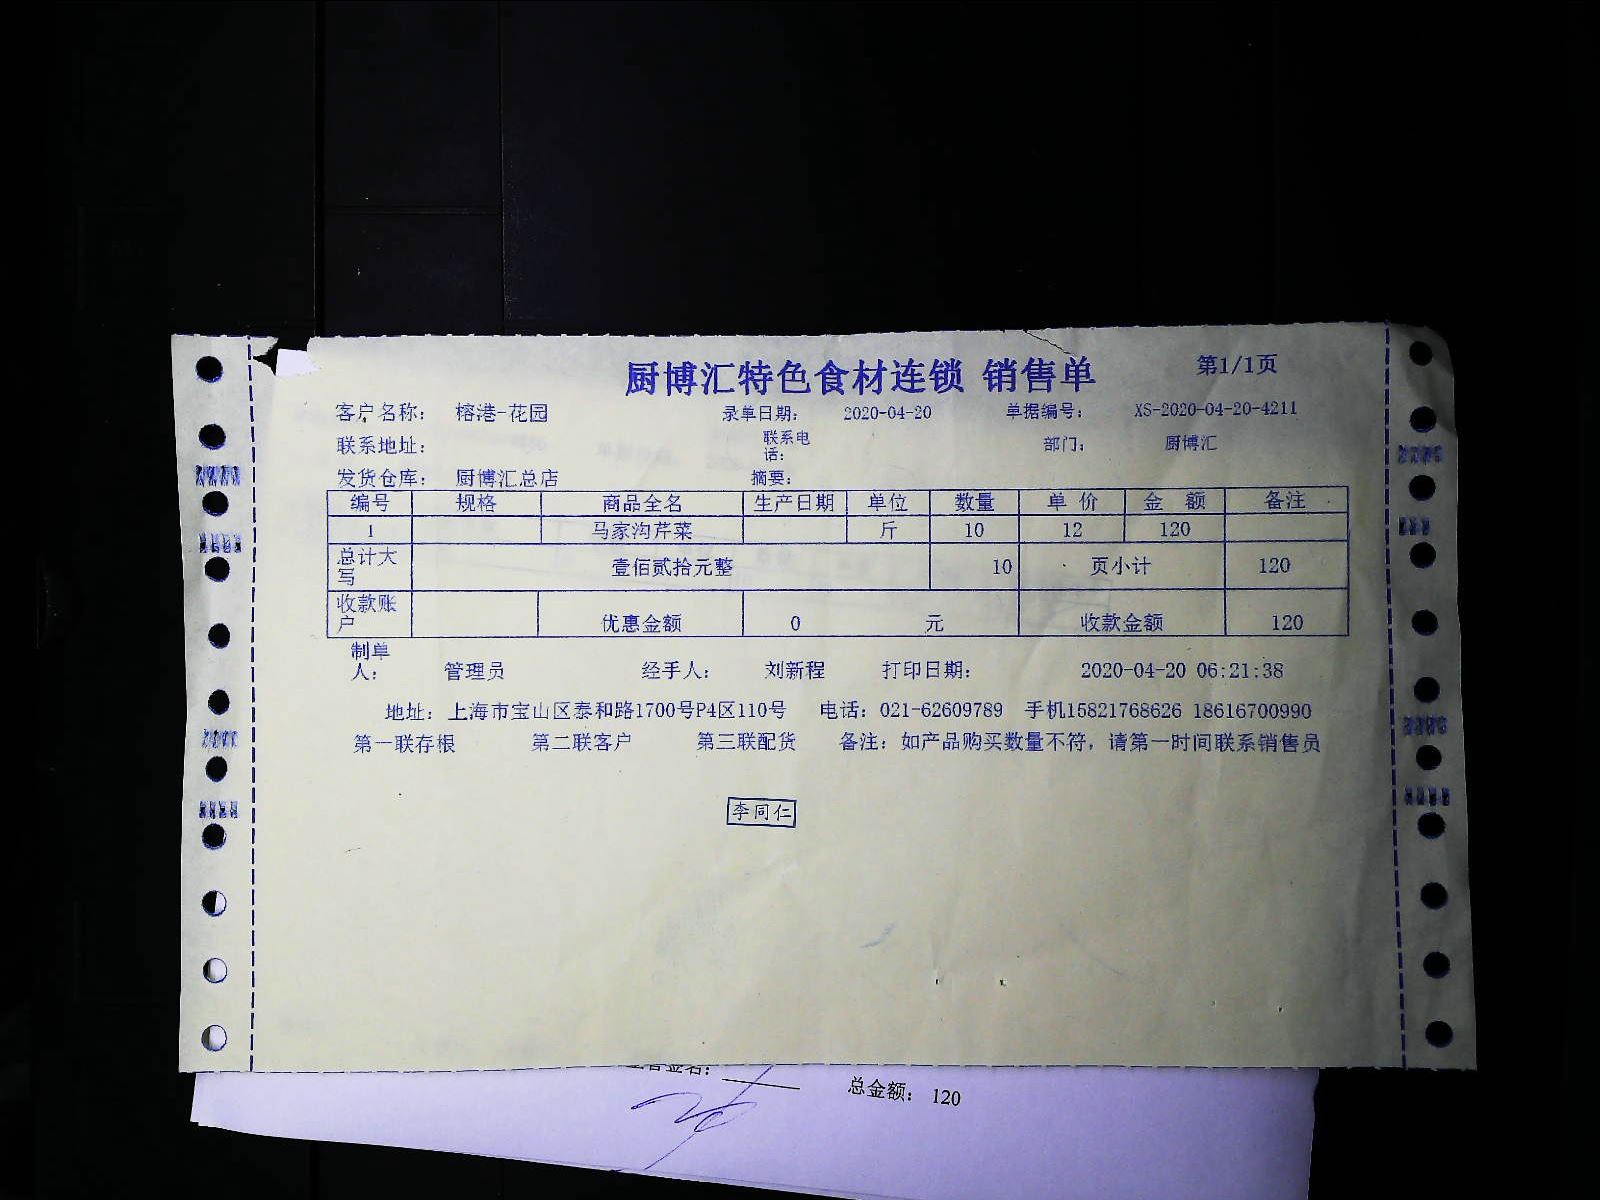 厨博汇特色食材连锁 销售单 第1/1页
客户名称: 榕港-花园 录单日期: 2020-04-20 单据编号: XS-2020-04-20-4211
联系地址: 联系电话: 部门: 厨博汇
发货仓库: 厨博汇总店 摘要:
编号 规格 商品全名 生产日期 单位 数量 单 价 金 额 备注
1 马家沟芹菜 斤 10 12 120
总计大写 壹佰贰拾元整 10 页小计 120
收款账户 优惠金额 0 元 收款金额 120
制单人: 管理员 经手人: 刘新程 打印日期: 2020-04-20 06:21:38
地址: 上海市宝山区泰和路1700号P4区110号 电话: 021-62609789 手机15821768626 18616700990
第一联存根 第二联客户 第三联配货 备注: 如产品购买数量不符, 请第一时间联系销售员
李同仁
总金额: 120